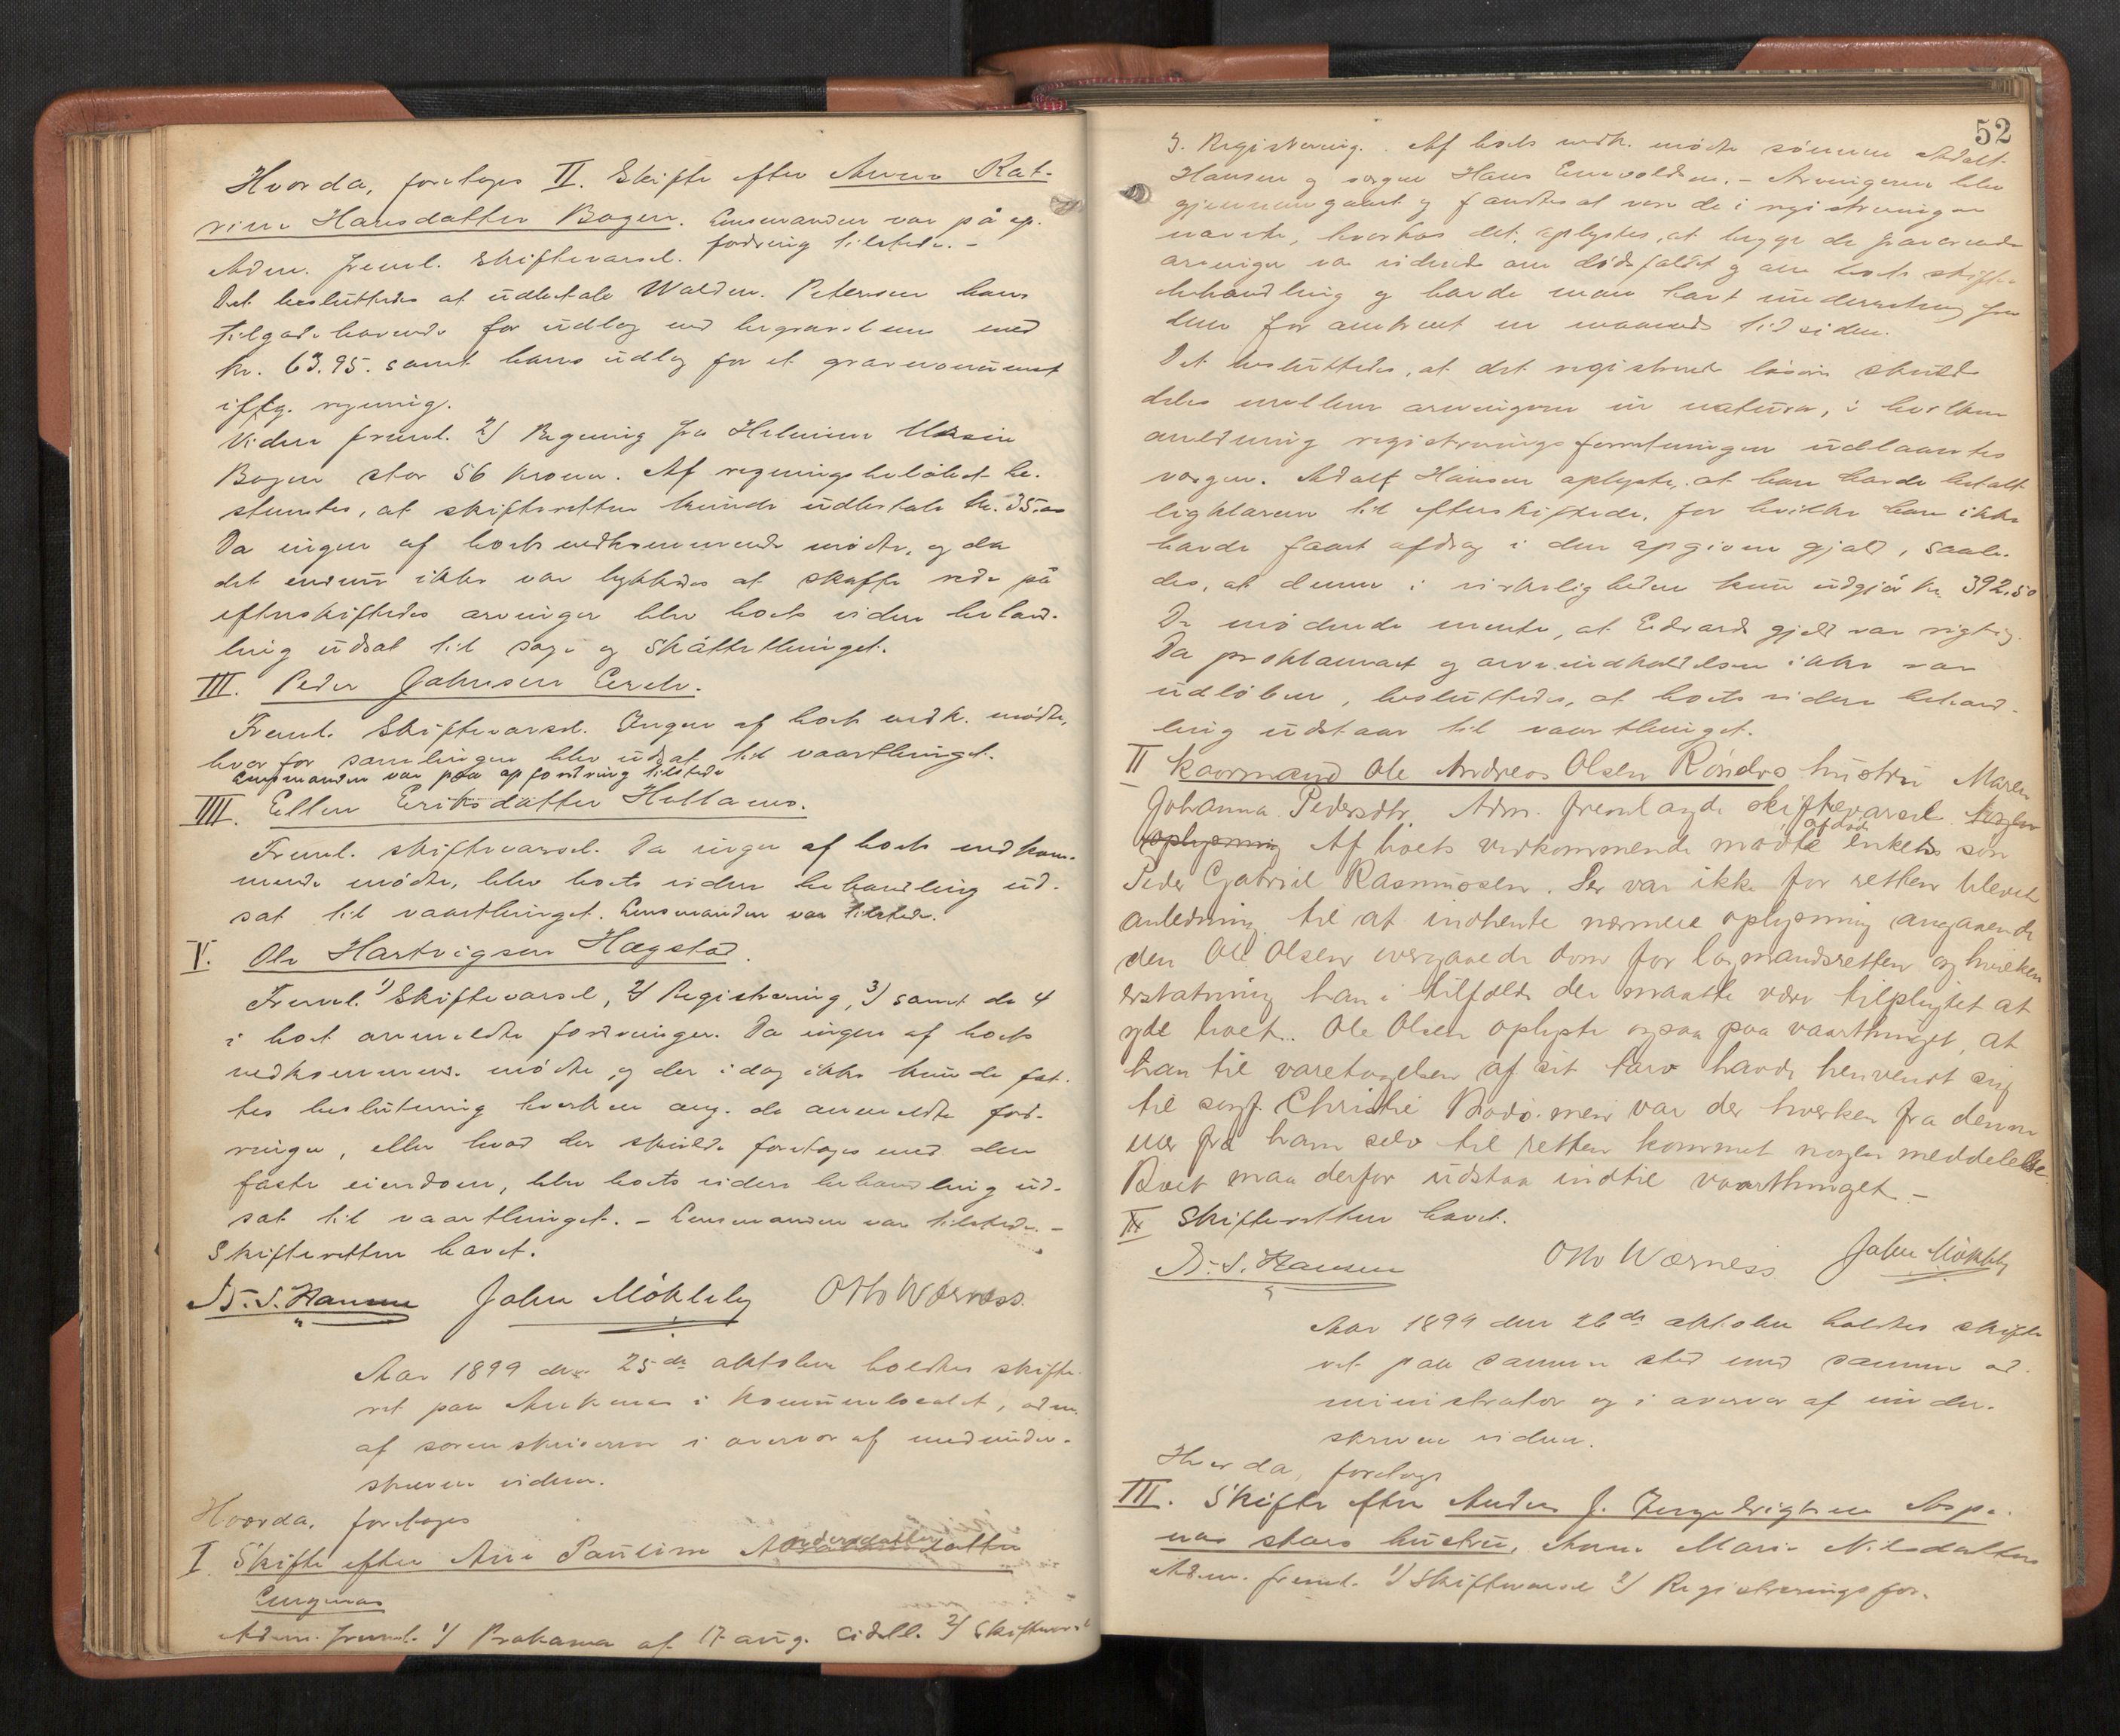 Hvorda, foretoges II. Skifte efter Anna Kat-
rine Hansdatter Bogen. Lensmanden var på op-
fordring tilstede. -
Adm. freml. skiftevarsel.
Det besluttedes at udbetale Waldem. Petersen hans
tilgodehavende for udlæg ved begravelsen med
kr. 63.95. samt hans udlæg for et gravmonument
iflg. regning.
Viden freml. 2) Regning fra Helmine
Bogen stor 56 kroner. Af regningsbeløbet be-
stemtes, at skifteretten kunde udbetale kr. 35.00
Da ingen af boets vedkommende mødte, og da
det endnu ikke var lykkedes at skaffe rede på
efterskiftedes arvinger blev boets videre behand-
ling udsat til sage og skattethinget.
III. Peder Johnsen
Freml. Skiftevarsel. Ingen af boets vedk. mødte,
hvorfor samlingen blev udsat til vaarthinget.
Lensmanden var paa opfordring tilstede
IIII. Ellen Eriksdatter
Freml. skiftevarsel. Da ingen af boets vedkom-
mende mødte, blev boets videre behandling ud-
sat til vaarthinget. Lensmanden var tilstede.
V. Ole Hartvigsen Hægstad.
Freml. 1) Skiftevarsel, 2) Registrering, 3) samt de 4
i boet anmeldte fordringer. Da ingen af boets
vedkommend. mødte, og der idag ikke kunde fat-
tes beslutning hverken ang. de anmeldte ford-
ringer, eller hvad der skulde foretages med den
faste eiendom, blev boets videre behandling ud-
sat til vaarthinget. - Lensmanden var tilstede. -
Skifteretten hævet.
S. Hansen John Møkleby Otto Wærness.
Aar 1899 den 25de oktober holdtes skifte-
ret paa i kommunelocalet, adm.
af sorenskriveren i overvær af medunder-
skreven vidner.
Hvorda, foretoges
I Skifte efter Ane Pauline Andersdatter datter
Adm. freml. 1) Proklama af 17 aug. sidstl. 2) Skiftevarsel
52
3. Registrering. Af boets vedk. mødte sønnen Adolf
Hansen og vergen Hans Enevoldsen. - Arvingerne blev
gjennemgaaet og fandtes at være de i registreringen
nævnte, hvorhos det oplystes, at begge de fraværende
arvinger var vidende om dødsfaldet og om boets skifte-
behandling og havde man havt underretning fra
dem for omtrent en maaneds tid siden.
Det besluttedes, at det registrerede løsøre skulde
deles mellem arvingerne in natura, i hvilken
anledning registreringsforretningen udlaantes
vergen. Adolf Hansen oplyste, at han havde betalt
ligklæderne til efterskiftede, for hvilke han ikke
havde faaet afdrag i den opgivne gjæld, saale-
des, at denne i virkeligheden kun udgjør kr. 392.50
De mødende mente, at Edvards gjæld var rigtig.
Da proklamaet og arveindkaldelsen ikke var
udløben, besluttedes, at boets videre behand-
ling udstaar til vaarthinget.
II Kaarmand Ole Andreas Olsen Røndes hustru Maren
Johanna Pedersdtr. Adm. fremlagde skiftevarsel. Nogen
oplysning Af boets vedkommende mødte afdød enkes søn
Peder Gabriel Rasmussen. Der var ikke for retten blevet
anledning til at indhente nærmere oplysning angaaende
den Ole Olsen overgaaede dom for lagmandsretten og hvilken
erstatning han i tilfælde der maatte være tilpligtet at
yde boet. Ole Olsen oplyste ogsaa paa vaarthinget, at
han til varetagelsen af sit tarv havde henvendt sig
til sagf. Christie Bodø. men var der hverken fra denne
eller fra ham selv til retten kommet nogen meddelelse.
Boet maa derfor udstaa indtil vaarthinget. -
Skifteretten hævet.
S. Hansen Otto Wærness John Møkleby
Aar 1899 den 26de oktober holdtes skifte
ret paa samme sted med samme ad-
ministrator og i overvær af under-
skrevne vidner.
Hvorda, foretoges
III. Skifte efter Anders J. Asp-
hustru, Anne Marie Nilsdatter
Adm. freml. 1) Skiftevarsel 2) Registreringsfor-